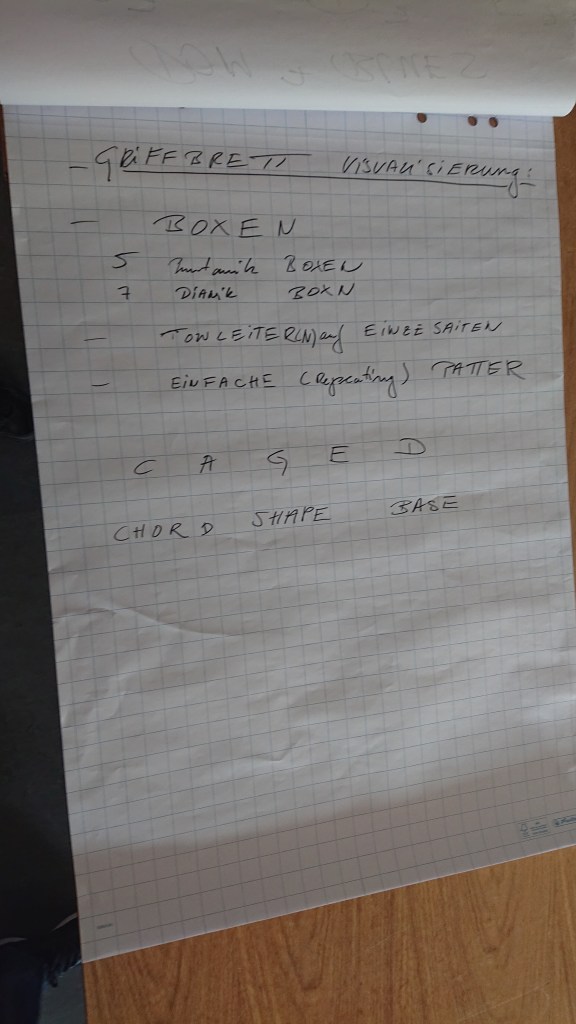 - GRIFFBRETT VISUALISIERUNG:
- BOXEN
5 BOXEN
7 DIANIK BOXN
- TONLEITER(N) auf EINZE SAITEN
- EINFACHE (Repeating) PATTER
C A G E D
CHORD SHAPE BASE